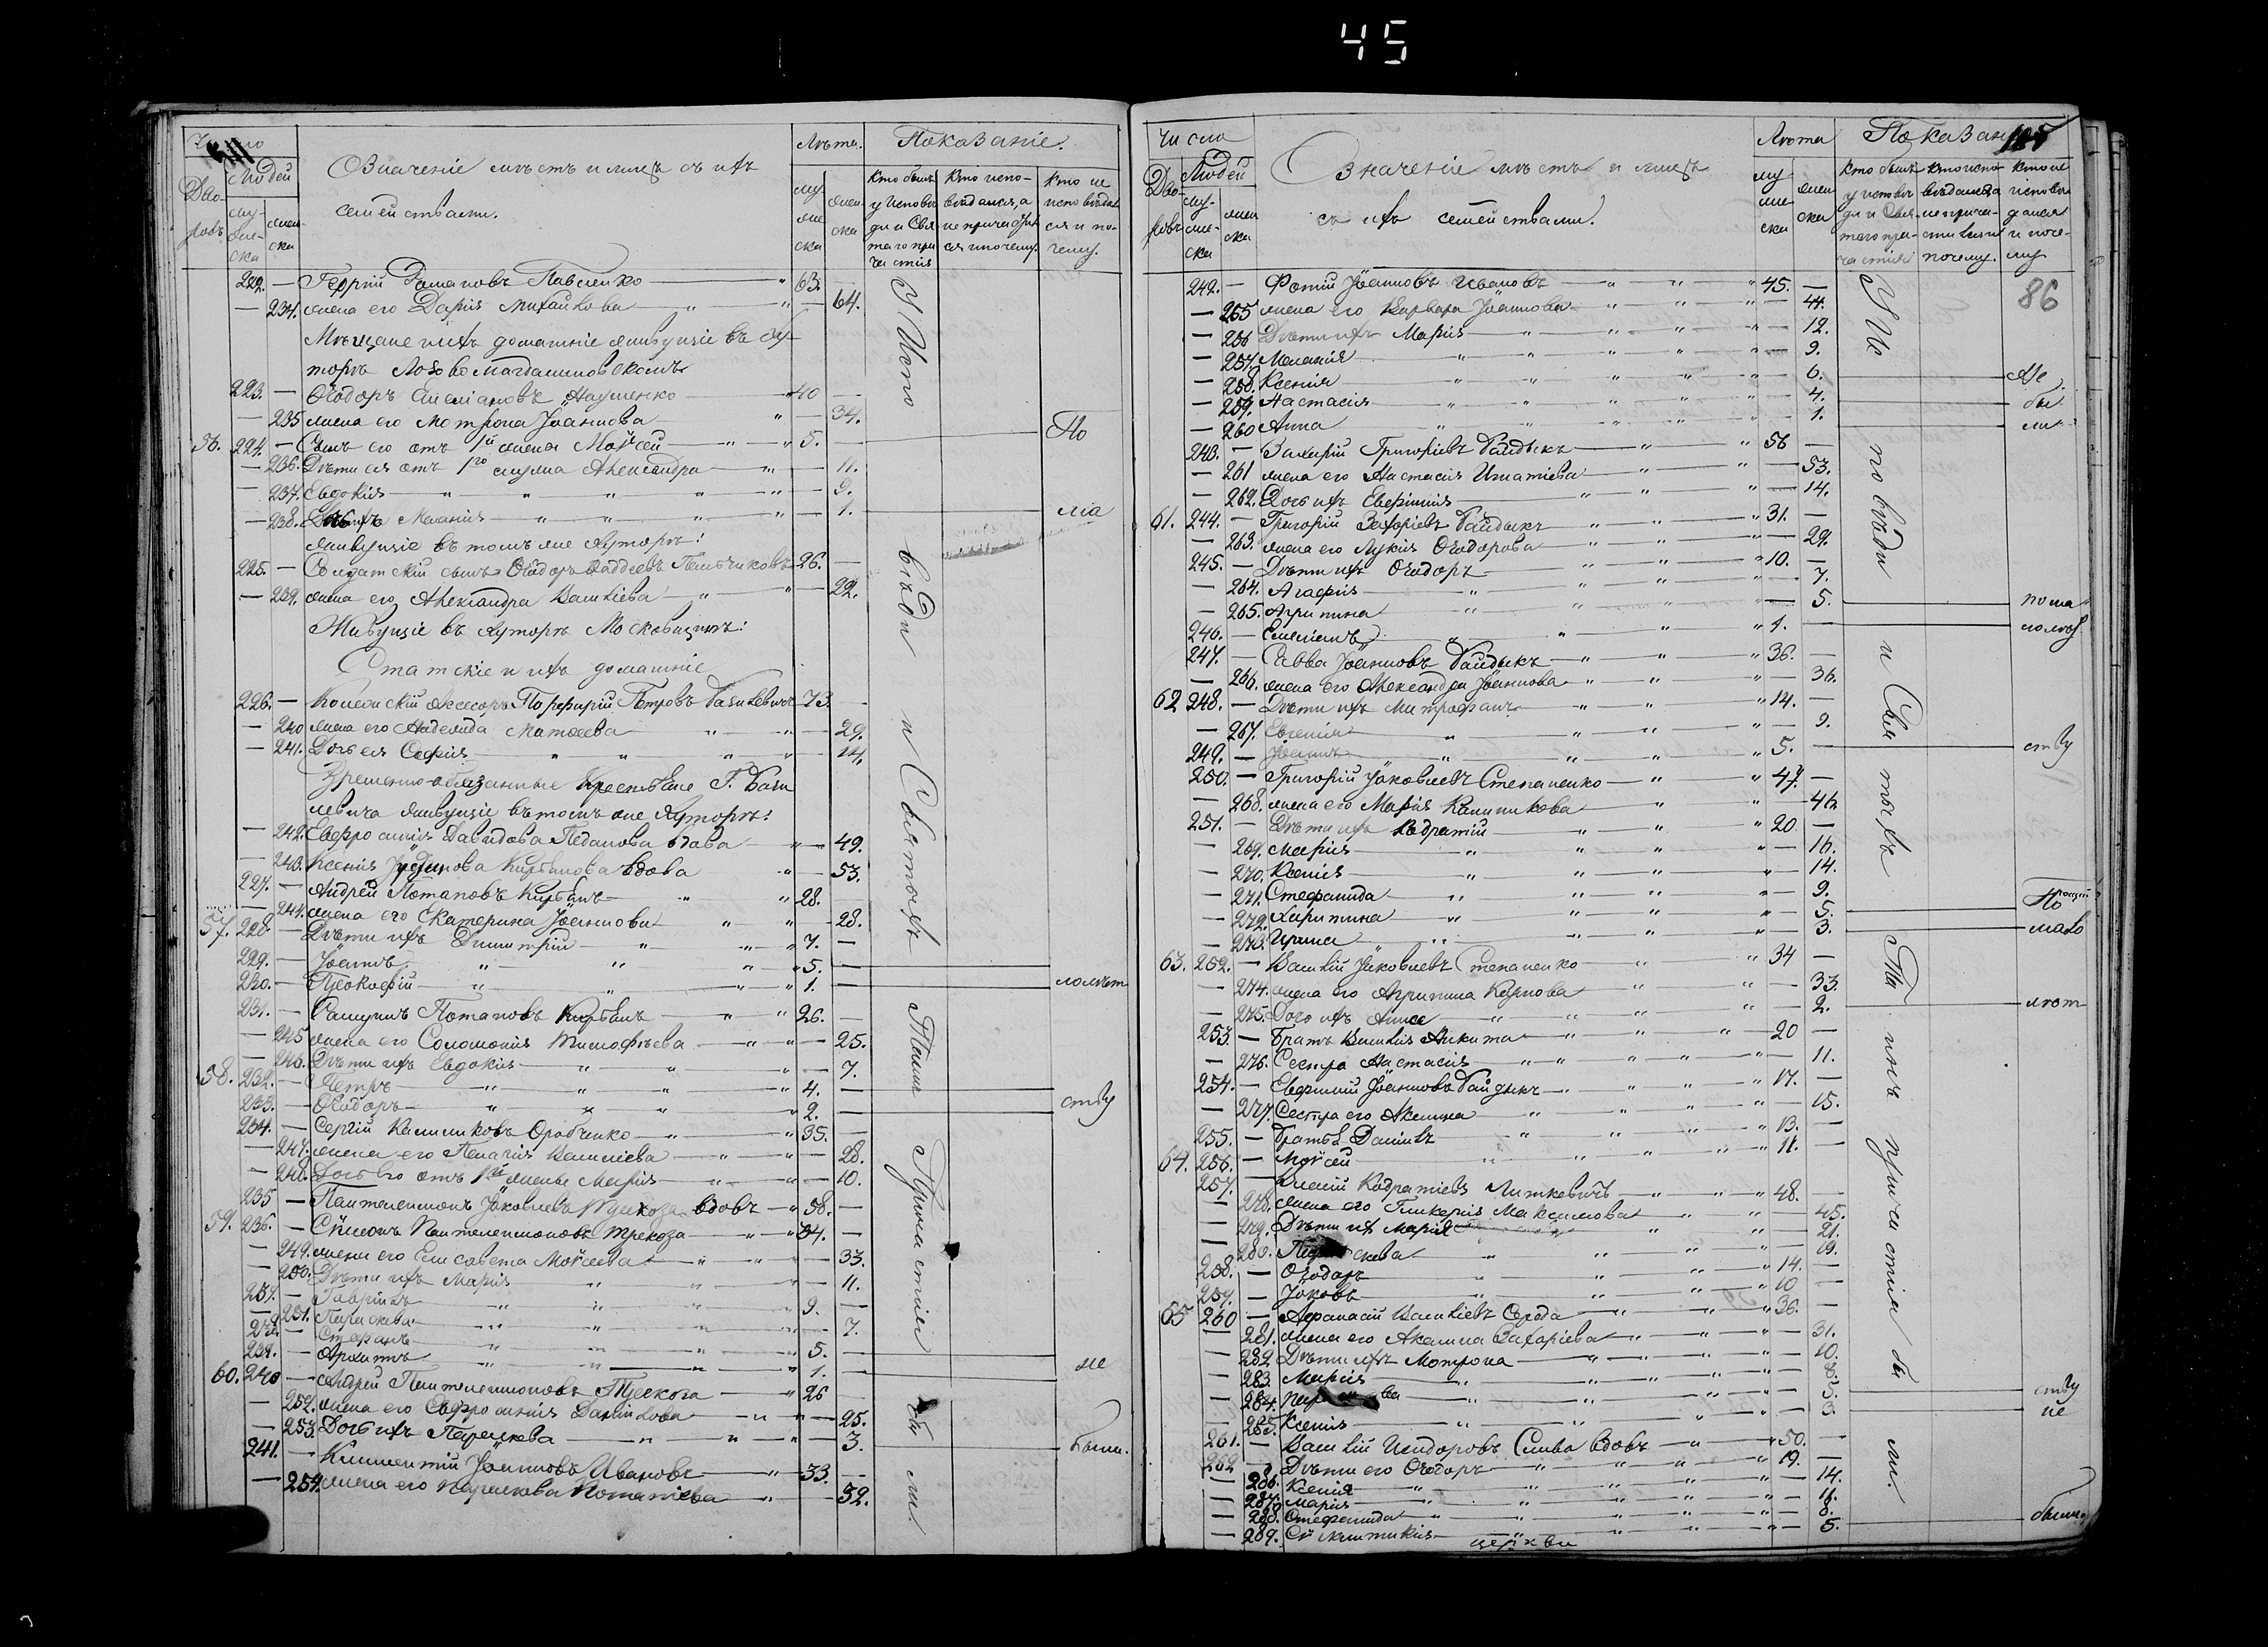 45
Число
Дво-
ровъ
Людей
му-
жес-
ка
женска
Означеніе мѣстъ и лицъ съ ихъ
семействами.
Лѣта.
му
жес
ска
жен
ска
Показаніе.
Кто былъ
у Исповѣ
ди и Свя
таго при
частія
Кто испо-
вѣдался, а
не причастил
ся и почему.
Кто не
исповѣдал
ся и по-
чему.
222. — Георгій Романовъ Павленко — 63. —
— 234. жена его Дарія Михайлова — 64.
Мѣщане и ихъ домашніе живущіе въ ху-
торѣ Лобово Магдалиновскомъ
223. — Ѳеодоръ Емеліановъ Науменко — 40 —
— 235 жена его Мотрона Іоаннова — 34.
56. 224. — Сынъ его отъ 1й жены Моѵсей — 5. —
— 236. Дѣти ея отъ 1го мужа Александра — 11.
— 237. Евдокія — 9.
— 238. Дочь ихъ Меланія — 1.
живущіе въ томъ же хуторѣ:
225. — Солдатскій сынъ Ѳеодоръ Фаддеевъ — 26. —
— 239. жена его Александра Василіева — 22.
Живущіе въ хуторѣ Московщинѣ:
Статскіе и ихъ домашніе
226. — Колежскій Асесоръ Порфирій Петровъ Базилевичъ 73. —
— 240 жена его Аделаида Матѳеева — 29.
— 241. Дочь ея Софія — 14.
Временно-обязанные Крестьяне Г. Бази
левича живущіе въ томъ же хуторѣ:
— 242. Евфросинія Давидова вдова — 49.
— 243. Ксенія вдова — 53.
227. — Андрей Потаповъ Курбанъ — 28.
— 244. жена его Екатерина Іоаннова — 28.
57. 228. — Дѣти ихъ Димитрій — 7. —
229. — Іоаннъ — 5. —
230. — Прокофій — 1. —
231. — Самуилъ Потаповъ Курбанъ — 26. —
— 245 жена его Соломонія Тимофѣева — 25.
— 246. Дѣти ихъ Евдокія — 7.
58. 232. — Петръ — 4. —
233. — Ѳеодоръ — 2. —
234. — Сергій Калинниковъ — 35. —
— 247. жена его Пелагія Василіева — 28.
— 248. Дочь его отъ 1й жены Марія — 10.
235 — Пантелеимонъ Іаковлевъ Трекоза вдовъ — 58. —
59. 236. — Сѵмеонъ Пантелеимоновъ Трекоза — 34. —
— 249. жена его Елисавета Моѵсеева — 33.
— 250. Дѣти ихъ Марія — 11.
237. — Гавріилъ — 9. —
— 251. Параскева — 7.
238. — Стефанъ — 5. —
239. — Архипъ — 1. —
60. 240 — Андрей Пантелеимоновъ Трекоза — 26 —
— 252. жена его Евфросинія Даніилова — 25.
— 253. Дочь ихъ Параскева — 3.
241. — Климентій Іоанновъ Ивановъ — 33. —
— 254. жена его Параскева Потапіева — 32.
У Испо
вѣди
и Святыхъ
Таинъ
Причастія
бы
ли.
По
ма
лолѣт
ству
не
были.
Число
Дво-
ровъ
Людей
му-
жес-
ка
жен
ска
Означеніе мѣстъ и лицъ
съ ихъ семействами.
Лѣта
му
жес
ска
жен
ска
Показаніе
125
Кто былъ
у исповѣ
ди и Свя-
таго при-
частія
Кто испо-
вѣдался а
не прича-
стился и
почему.
Кто не
исповѣ
дался
и поче-
му
86
242. — Фотій Іоанновъ Ивановъ — 45. —
— 255 жена его Варвара Іоаннова — 44.
— 256 Дѣти ихъ Марія — 12.
— 257. Меланія — 9.
— 258. Ксенія — 6.
— 259. Настасія — 4.
— 260 Анна — 1.
243. — Захарій Григоріевъ Байдыкъ — 56 —
— 261 жена его Настасія Игнатіева — 53.
— 262. Дочь ихъ Евфимія — 14.
61. 244. — Григорій Захаріевъ Байдыкъ — 31. —
— 263. жена его Лукія Ѳеодорова — 29.
245. — Дѣти ихъ Ѳеодоръ — 10. —
— 264. Агафія — 7.
— 265. Агрипина — 5.
246. — Емеліанъ — 1. —
247. — Савва Іоанновъ Байдыкъ — 36. —
— 266. жена его Александра Іоаннова — 36.
62 248. — Дѣти ихъ Митрофанъ — 14. —
— 267. Евгенія — 9.
249. — Іоаннъ — 5. —
250. — Григорій Іаковлевъ Степаненко — 47. —
— 268. жена его Марія Калиникова — 46
251. — Дѣти ихъ Кодратій — 20 —
— 269. Марія — 16.
— 270. Ксенія — 14.
— 271. Стефанида — 9.
— 272. Харитина — 5.
— 273. Ирина — 3.
63. 252. — Василій Іаковлевъ Степаненко — 34 —
— 274. жена его Агрипина Карпова — 33.
— 275. Дочь ихъ Анна — 2.
253. — Братъ Василія Никита — 20 —
— 276. Сестра Настасія — 11.
254. — Евфимій Іоанновъ Байдыкъ — 17. —
— 277. Сестра его Акелина — 15.
255. — Братья Даніилъ — 13. —
64. 256. — Моѵсей — 11. —
257. — Кодратіевъ Литкевичъ — 48. —
— 278. жена его Гликерія Максимова — 45.
— 279. Дѣти ихъ Марія — 21.
— 280. Параскева — 19.
258. — Ѳеодоръ — 14. —
259. — Іаковъ — 10 —
65 260 — Афанасій Василіевъ Середа — 36. —
— 281. жена его Акелина Захаріева — 31.
— 282. Дѣти ихъ Мотрона — 10.
— 283. Марія — 8.
— 284. Параскева — 5.
— 285. Ксенія — 3.
261. — Василій Исидоровъ Слива вдовъ — 50. —
262 — Дѣти его Ѳеодоръ — 19. —
— 286. Ксенія — 14.
— 287. Марія — 11.
— 288. Стефанида — 8.
— 289. Сѵнклитикія — 5.
церкви
У Ис
повѣди
и Свя
тыхъ
Та
инъ
причастія бы
ли.
Не
бы
ли
по ма
лолѣт
ству
По
мало
лѣт
ству
не
были.